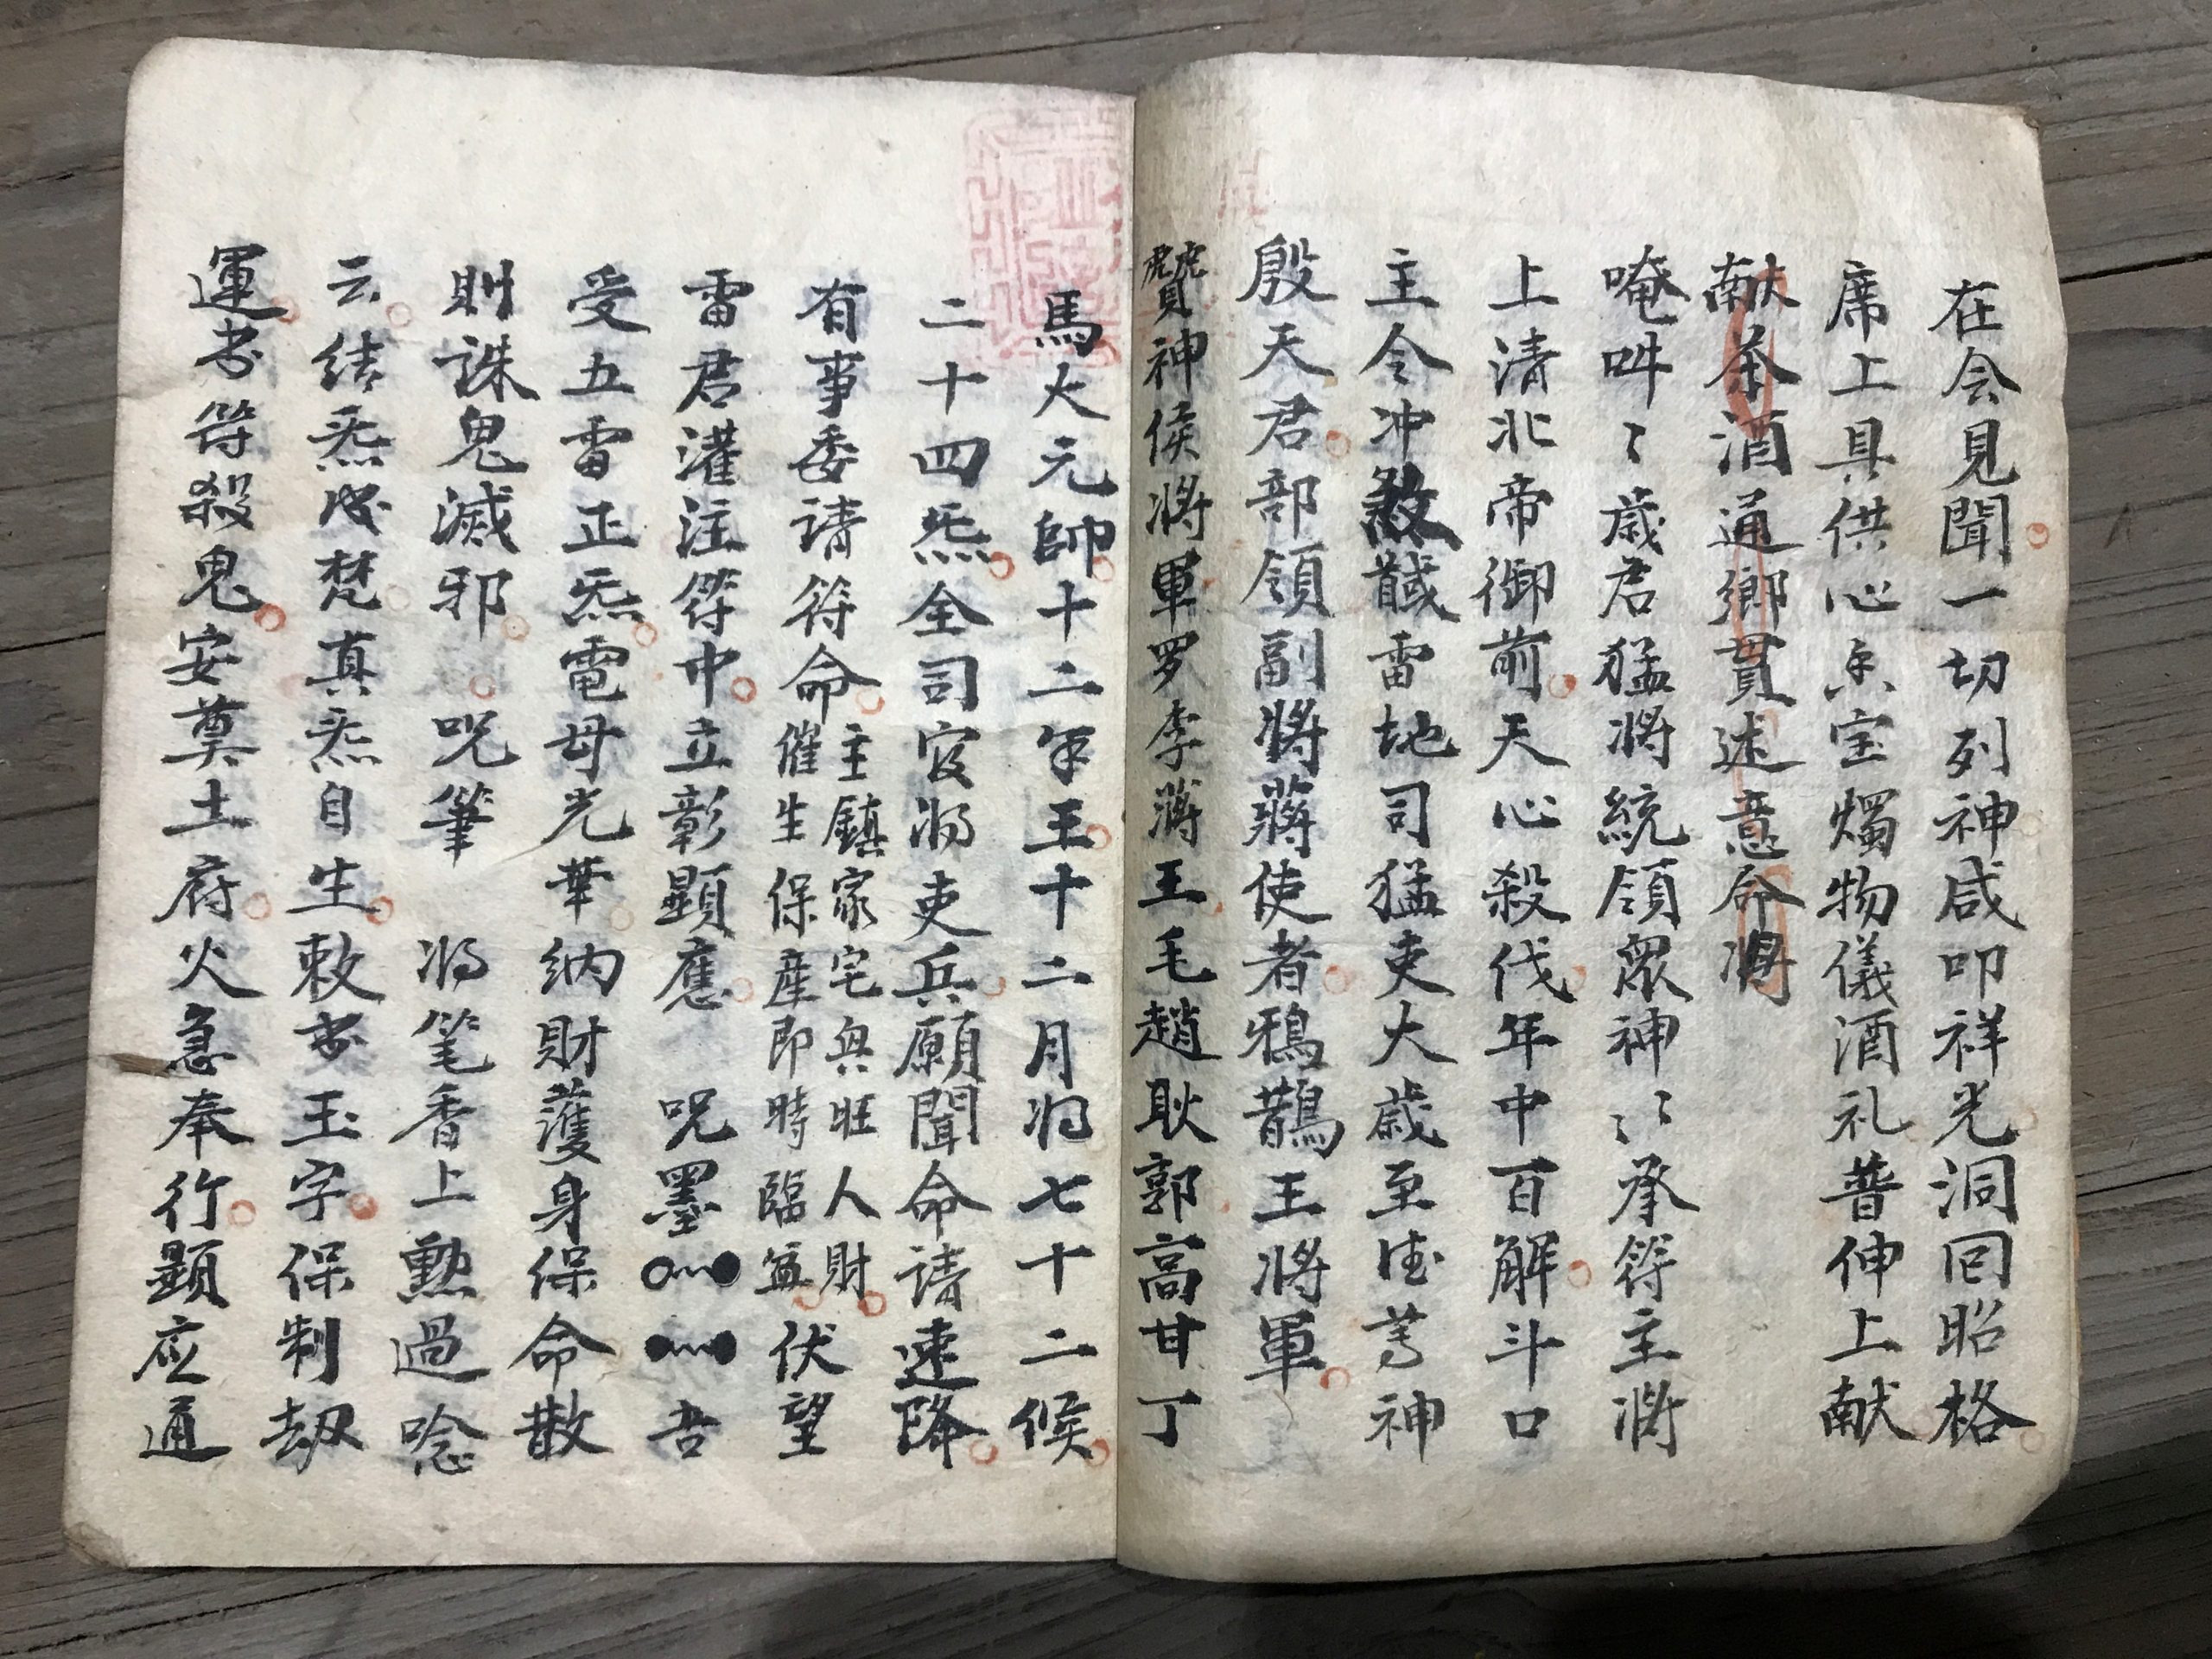 在会見聞一切列神咸叩祥光洞回昭格
席上具供心香宝燭物儀酒礼普伸上献
献茶酒通鄉貫述意命将
唵吽〻歲君猛将統領眾神〻承符主
上清北帝御前天心殺伐年中百解斗口
主令冲煞雷地司猛吏大歲至德尊神
殷天君部領副将蔣使者鴉鵲王将軍
神侯将軍罗李蔣王毛趙耿郭高甘丁
馬火元帥十二年王十二月将七十二候
二十四炁全司官将吏兵願聞命請速降
有事委請符命主鎮家宅興旺人財催生保産即時臨盆伏望
雷君灌注符中立彰顕應 呪墨 吾
受五雷正炁電母光華納財護身保命散
則誅鬼滅邪 呪筆 将笔香上勲過唸
云结炁成梵真炁自生敕书玉字保制劫
運书符殺鬼安奠土府火急奉行顕应通